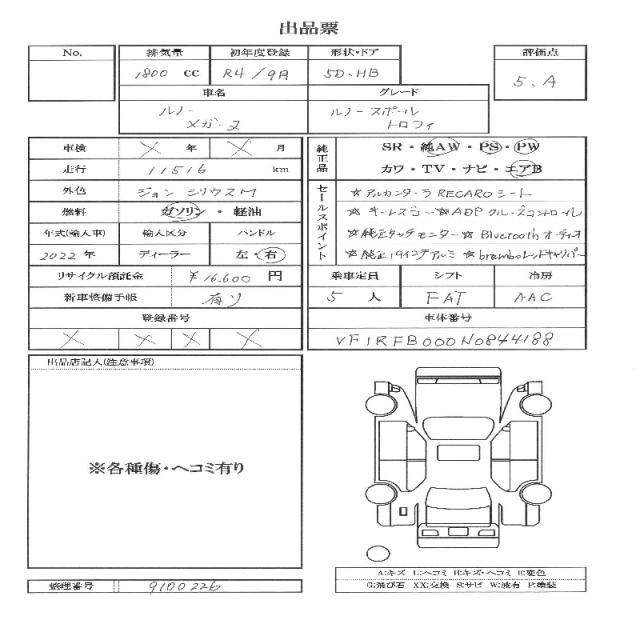 出品票
No. 排気量 初年度登録 形状・ドア 評価点
1800 cc R4/9月 5D.HB 5.A
車名 グレード
ルノー ルノースポール
メガーヌ トロフィ
車検 × 年 × 月 純正品 SR・純AW・PS・PW
走行 11516 km カワ・TV・ナビ・エアB
外色 ジョン シリウスM セールスポイント ☆アルカンターラRECAROシート
燃料 ガソリン・軽油 ☆キーレスゴー☆ADPクルーズコントロイレ
年式(輸入車) 輸入区分 ハンドル ☆純正タッチモニター☆Bluetoothオーディオ
2022年 ディーラー 左・右 ☆純正19インチアルミ☆bremboレッドキャリパー
リサイクル預託金 ¥16.600 円 乗車定員 シフト 冷房
新車整備手帳 有り 5 人 FAT AAC
登録番号 車体番号
× × × × VF1RFB000N0844188
出品店記入(注意事項)
※各種傷・ヘコミ有り
A:キズ U:ヘコミ B:キズ・ヘコミ E:変色
G:飛び石 XX:交換 S:サビ W:波有 P:塗装
整理番号 9100226